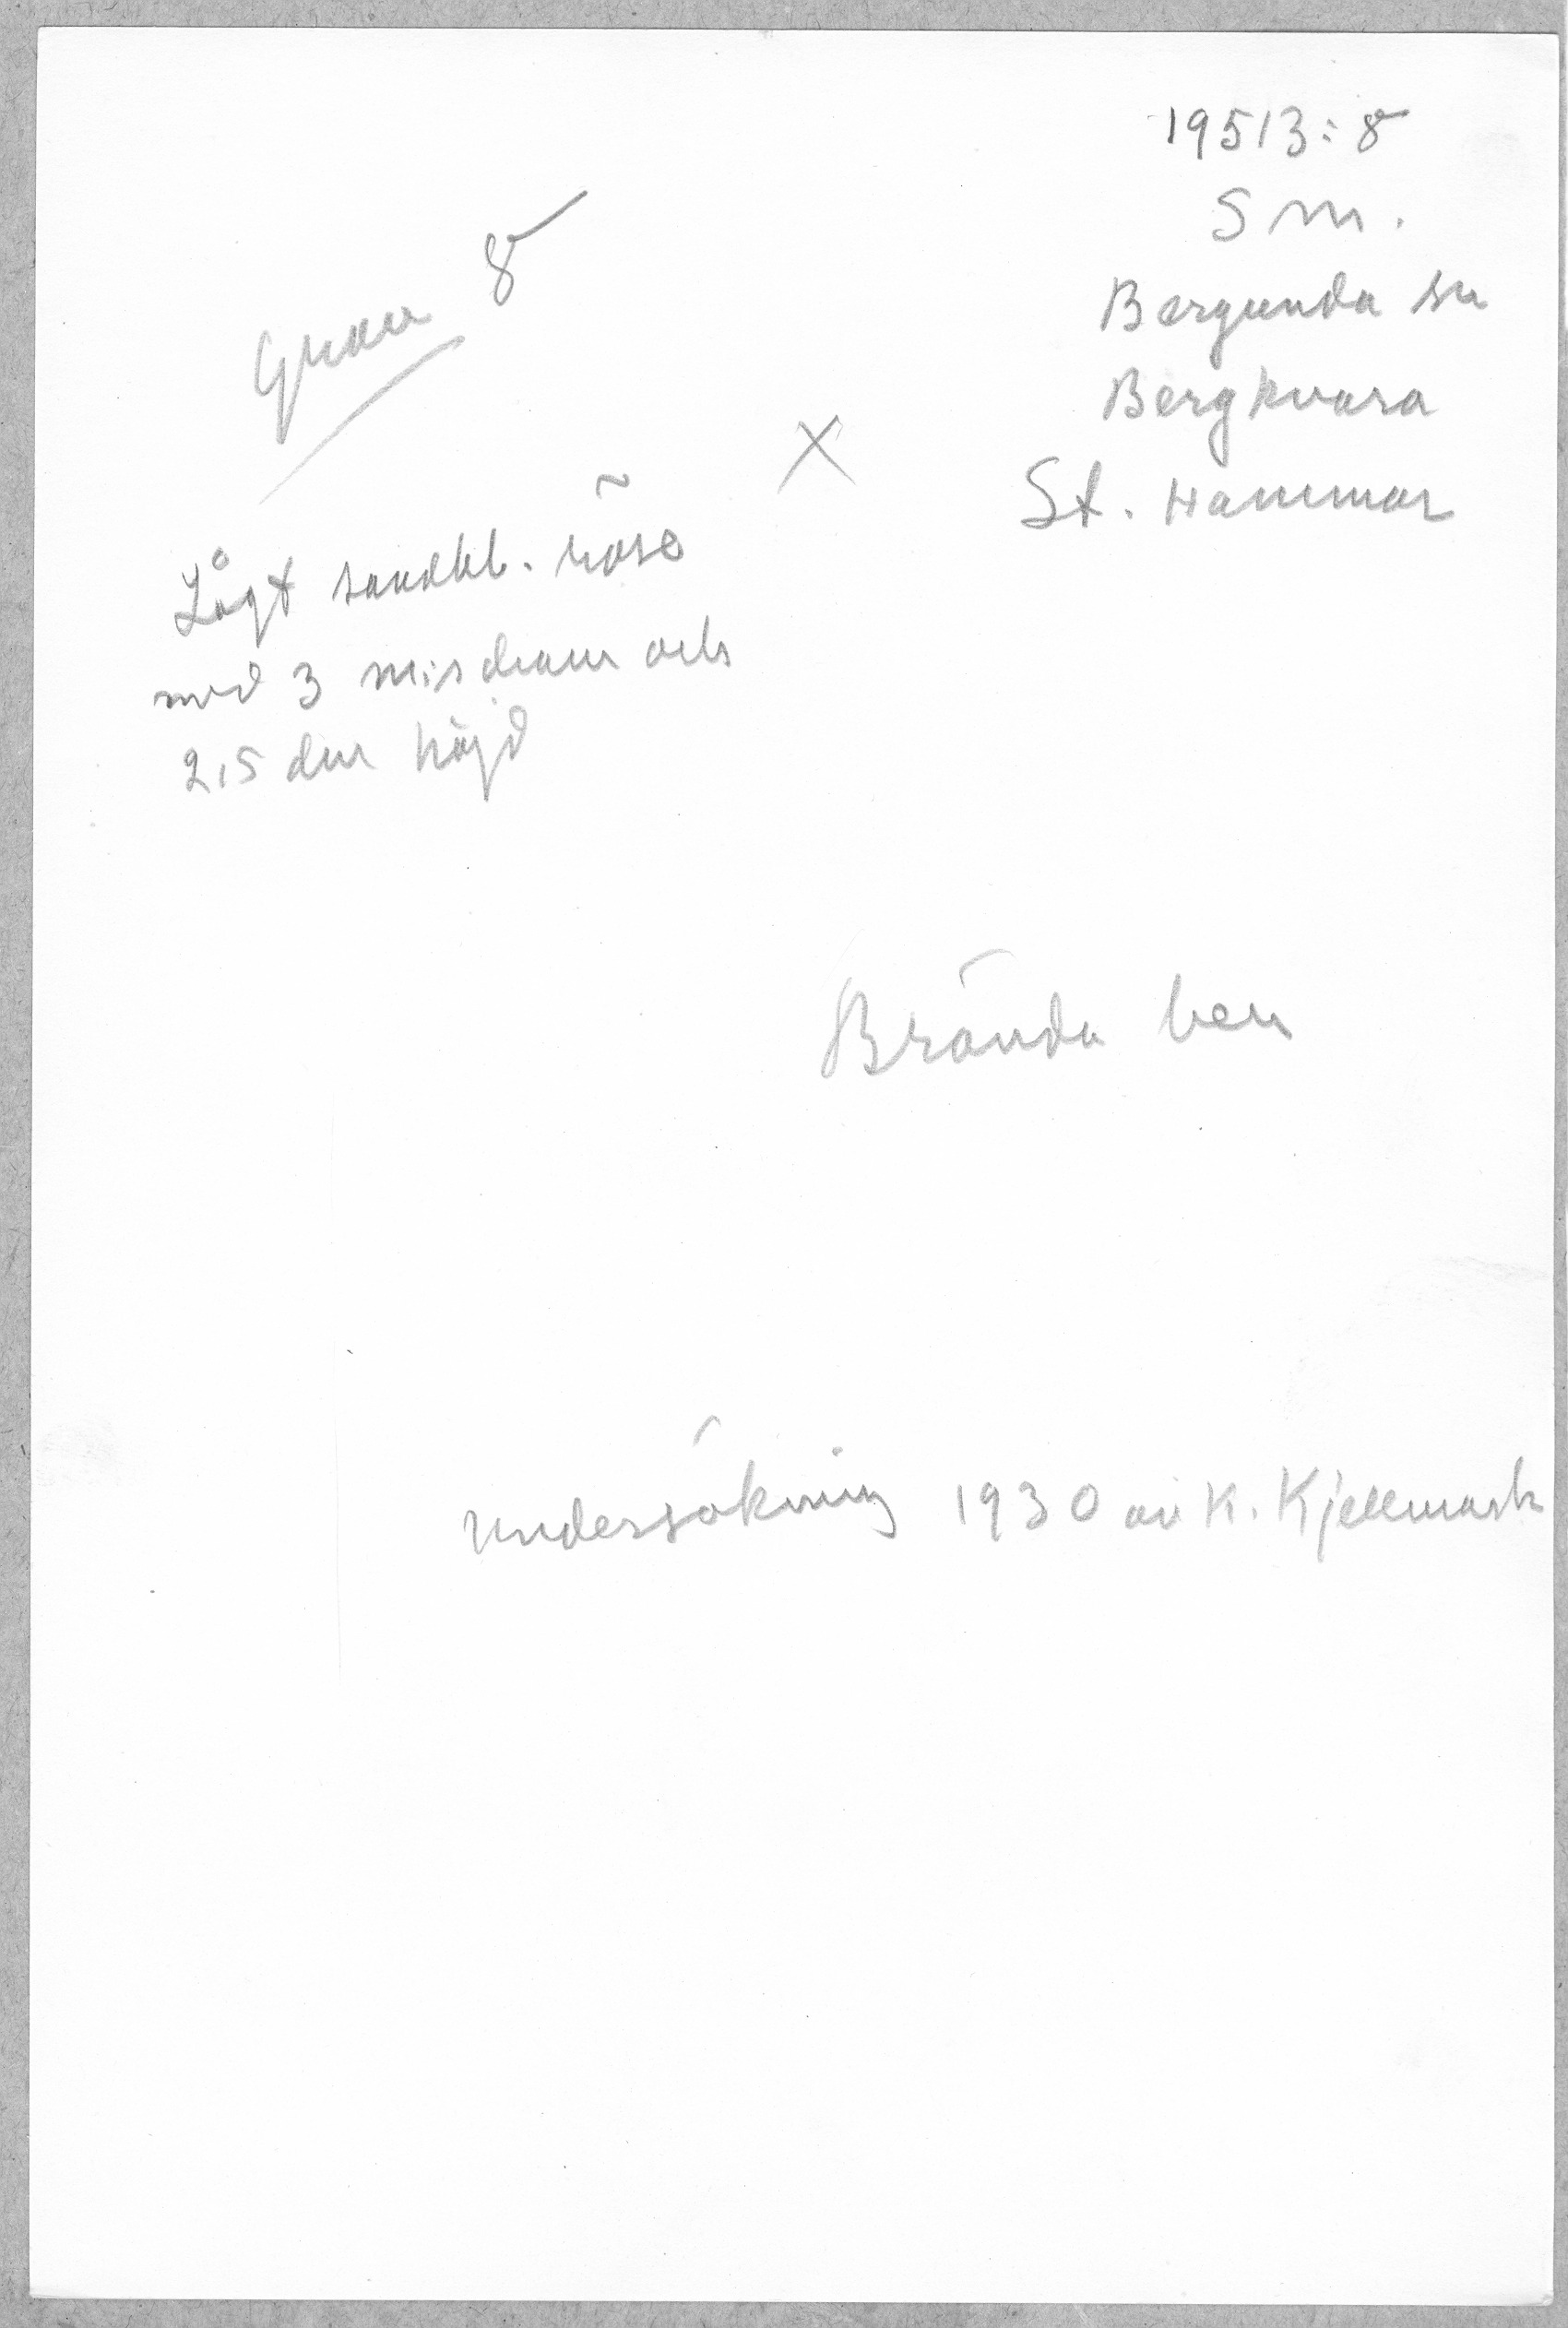 19513:8
Sm.
Bergunda sn
Bergkvara
St. Hammar
Grav 8
X
Lågt sandbl. röse
med 3 m:s diam och
2,5 dm höjd
Brända ben
Undersökning 1930 av K. Kjellmark